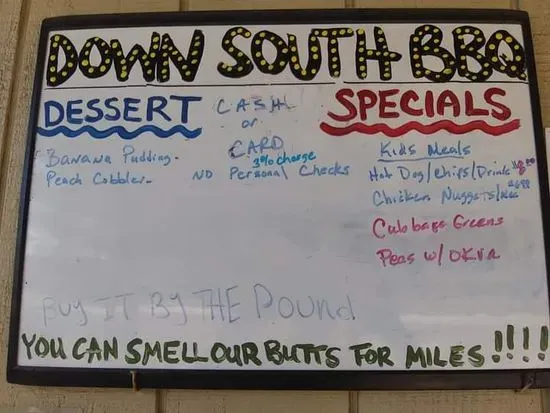 DOWN SOUTH BBQ
DESSERT
Banana Pudding-
Peach Cobbler-
CASH
or
CARD
3% charge
NO Personal Checks
SPECIALS
Kids Meals
Hot Dog/Chips/Drink
Chicken Nuggets/
Cabbage Greens
Peas w/ OKra
BUY IT BY THE Pound
YOU CAN SMELL OUR BUTTS FOR MILES!!!!